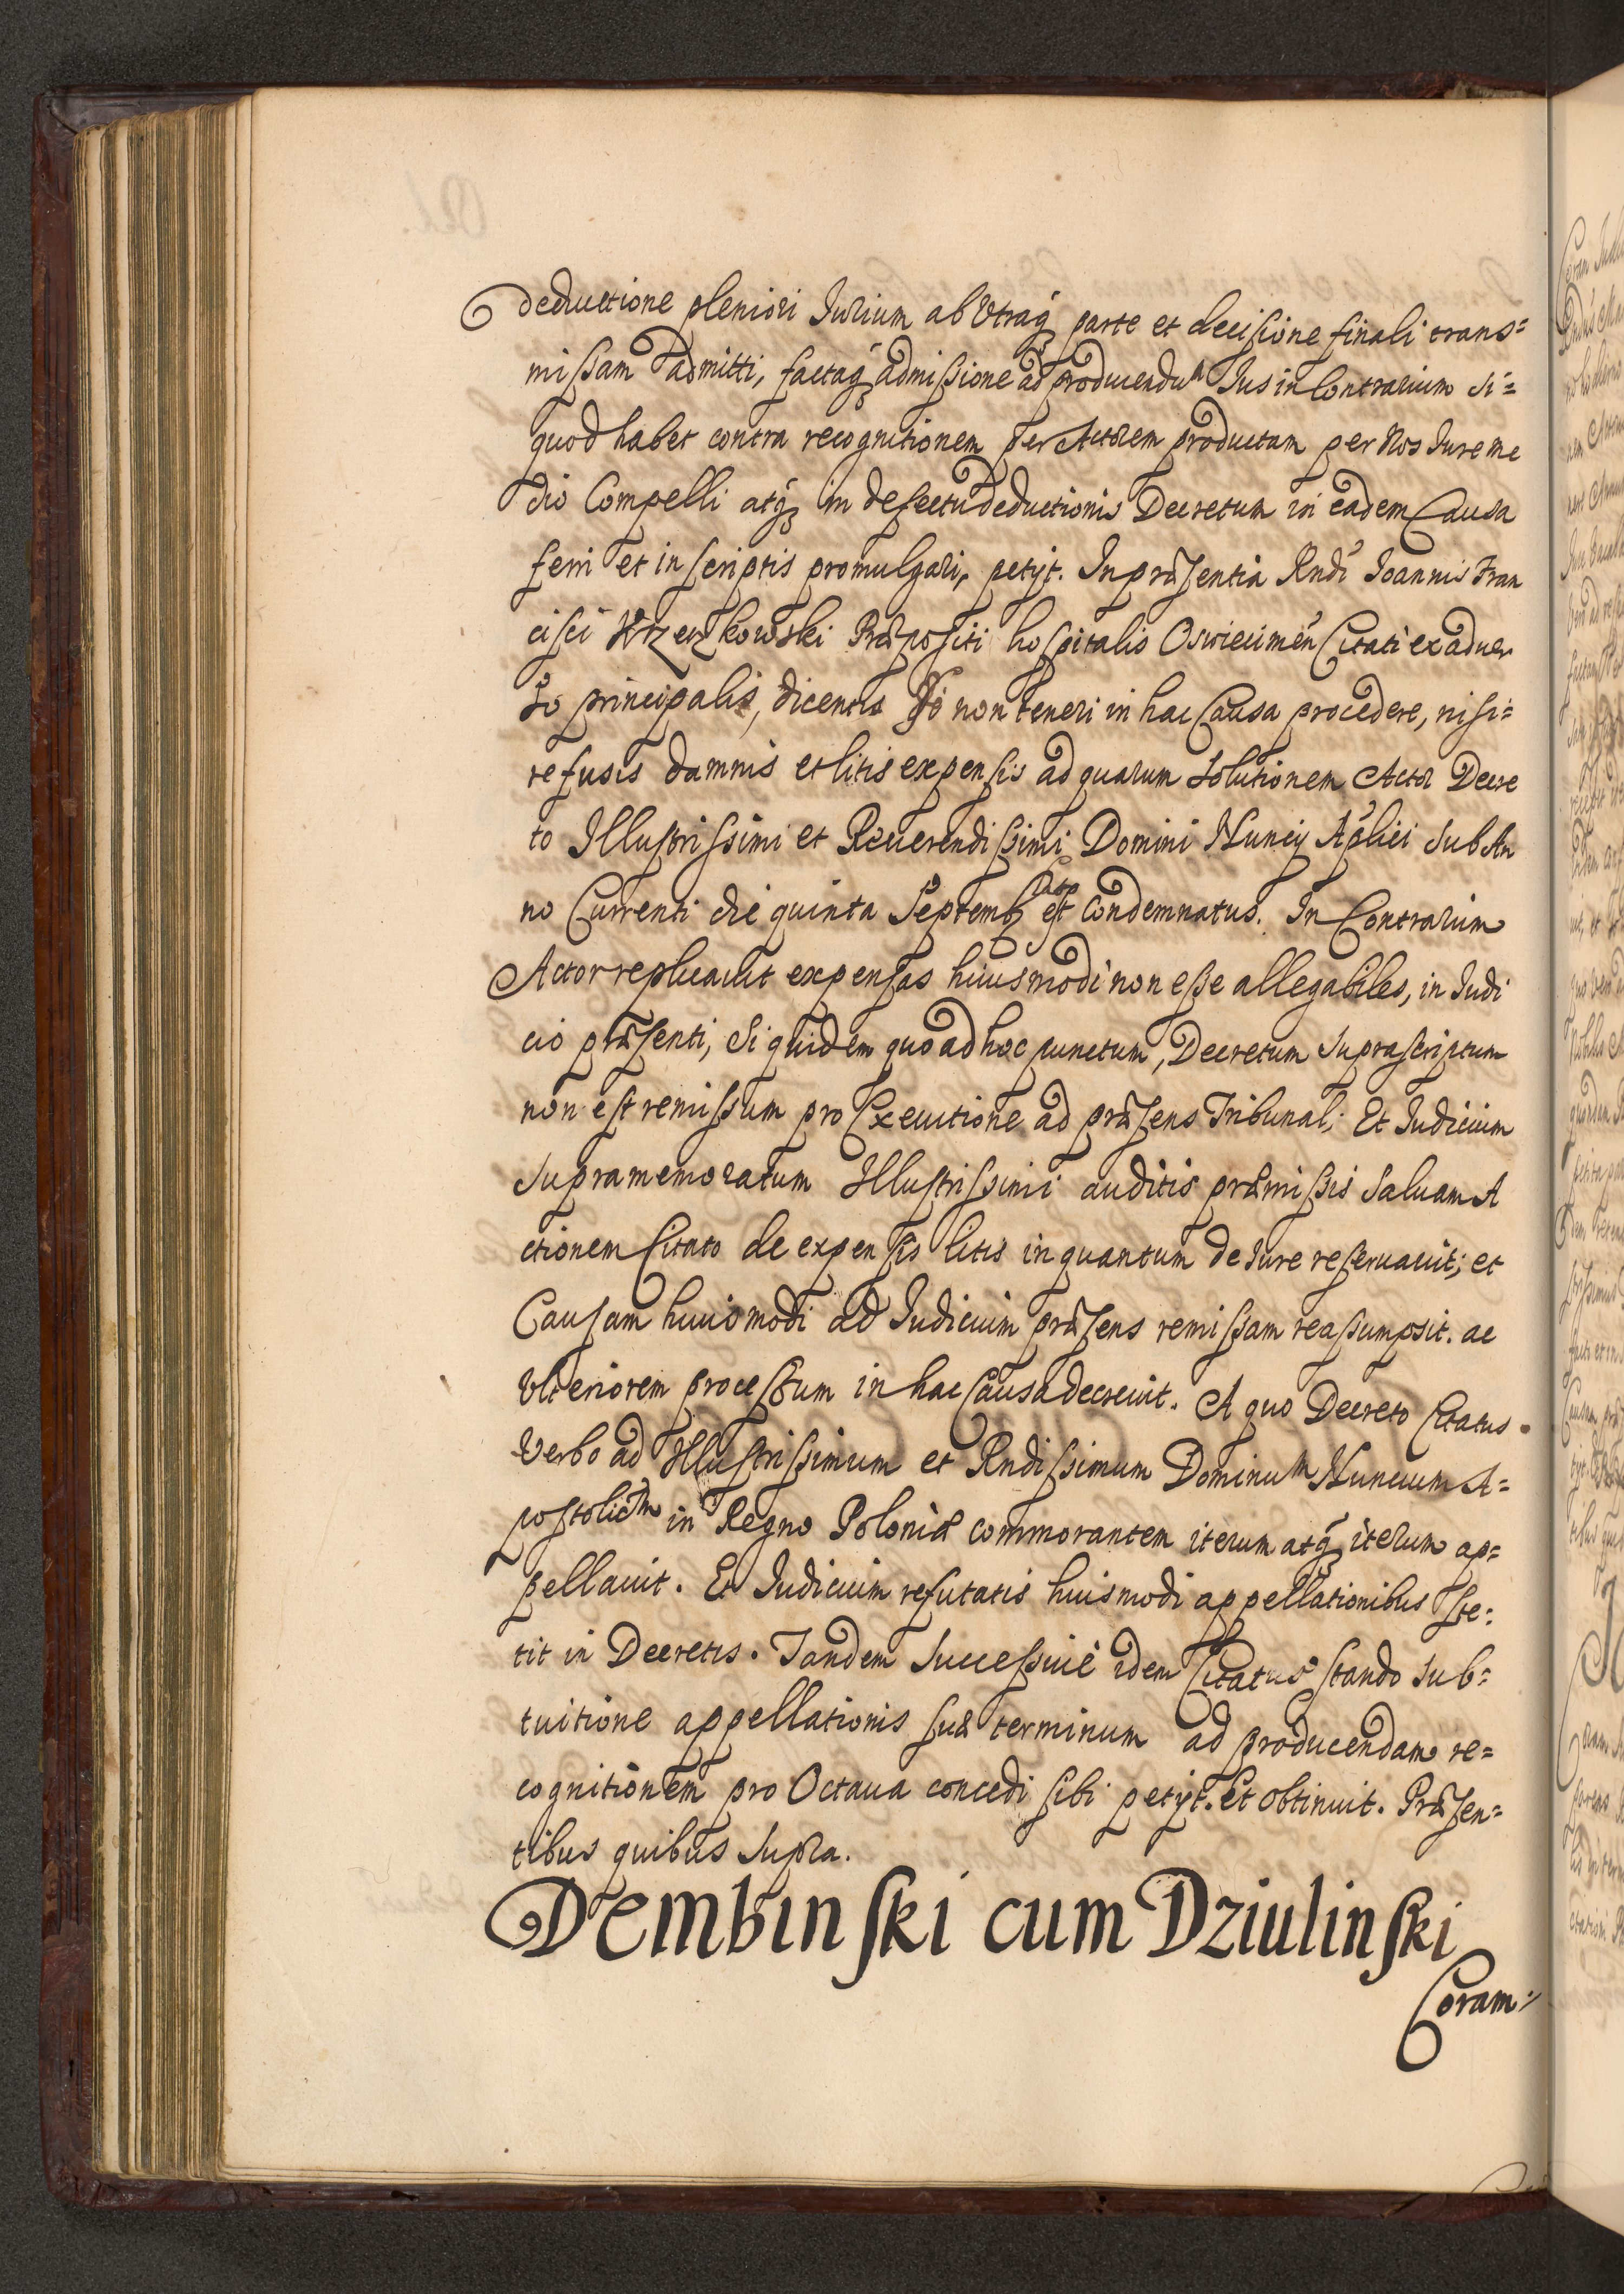 deductione pleniori Jurium ab Utraq́ꝫ parte et decisione finali trans=
missam admitti, factaq́ꝫ admissione ad producendum Jus in Contrarium si=
quod habet contra recognitionem per Actorem productam per Nos Jure me
dio Compelli atq́ꝫ in defectu deductionis Decretum in eadem Causa
ferri et in scriptis promulgari, petÿt. In præsentia Rndi Joannis Fran
cisci Præpositi hospitalis Oswiecimen̄ Citati ex aduer
so principalis, dicentis non teneri in hac Causa procedere, nisi=
refusis damnis et litis expensis ad quarum solutionem Actor Decre
to Illustrissimi et Reuerendissimi Domini Nuncÿ Aplici sub An
no Currenti die quinta Septembꝫ est Condemnatus. In Contrarium
Actor replicauit expensas huiusmodi non esse allegabiles, in Judi
cio præsenti, siquidem quo ad hoc punctum, Decretum suprascriptum
non est remissum pro Executione ad præsens Tribunal; Et Judicium
supramemoratum Illustrissimi auditis præmissis saluam A
ctionem Citato de expensis litis inquantum de Jure reseruauit; et
Causam huiusmodi ad Judicium præsens remissam reassumpsit. ac
Ulteriorem processum in hac Causa decreuit. A quo Decreto Citatus
Verbo ad Illustrissimum et Rndissimum Dominum Nuncium A=
postolicum in Regno Poloniæ commorantem iterum atq́ꝫ iterum ap=
pellauit. Et Judicium refutatis huiusmodi appellationibus ste=
tit in Decretis. Tandem Successiuè idem Citatus stando sub=
tuitione appellationis suæ terminum ad producendam re=
cognitionem pro Octaua concedi sibi petÿt. Et obtinuit. Præsen=
tibus quibus supra.
Dembinski cum Dziulinski
Coram: